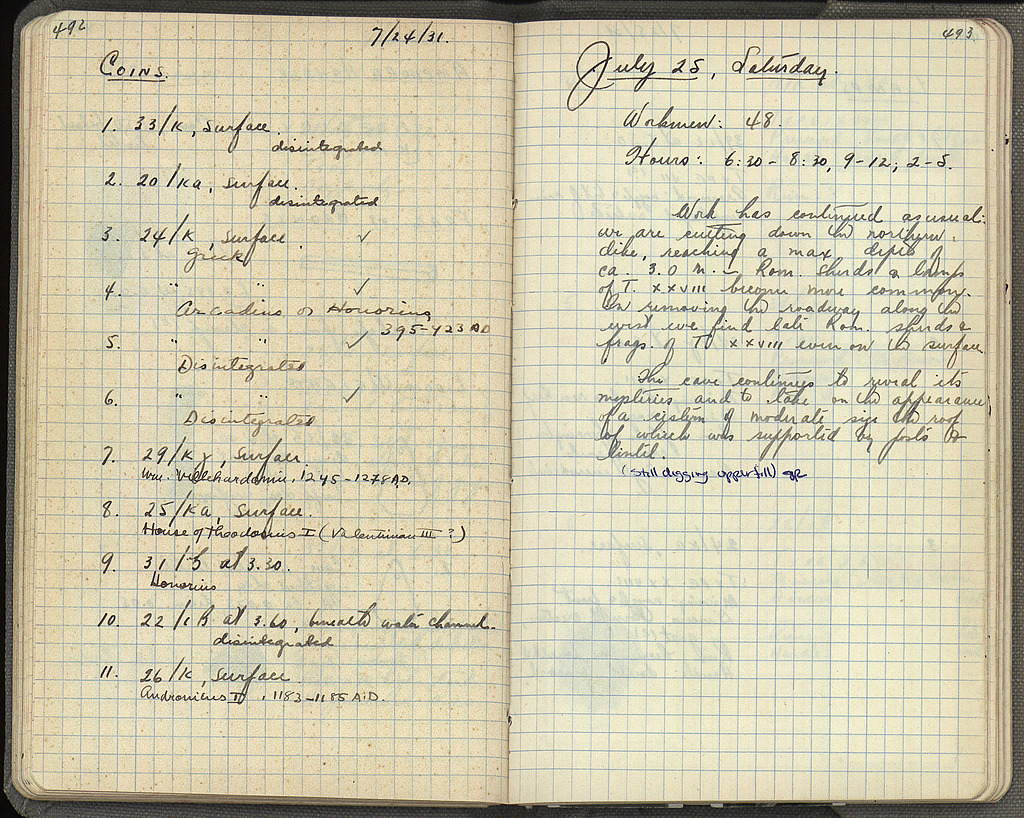 492
7/24/31.
Coins.
1. 33/K, surface.
disintegrated
2. 20/Ka, surface.
disintegrated
3. 24/K, surface. ✓
Greek
4. " " ✓
Arcadius or Honorius
395-423 AD
5. " " ✓
Disintegrated
6. " " ✓
Disintegrated
7. 29/K, surface.
Wm. Villehardouin, 1245-1278 A.D.
8. 25/Ka, surface.
House of Theodosius I (Valentinian III?)
9. 31/ at 3.30.
Honorius
10. 22/ at 3.60, beneath water channel.
disintegrated
11. 26/K, surface.
Andronicus II, 1183-1185 A.D.
493
July 25, Saturday.
Workmen: 48.
Hours: 6:30 - 8:30, 9-12, 2-5.
Work has continued as usual:
we are cutting down the northern
dike, reaching a max depth of
ca. 3.0 m. - Rom. sherds & lamps
of T. XXVIII become more common.
In removing the roadway along the
west we find late Rom. sherds &
frags. of T. XXVIII even on the surface
The cave continues to reveal its
mysteries and to take on the appearance
of a cistern of moderate size the roof
of which was supported by posts &
lintel.
(still digging upper fill)